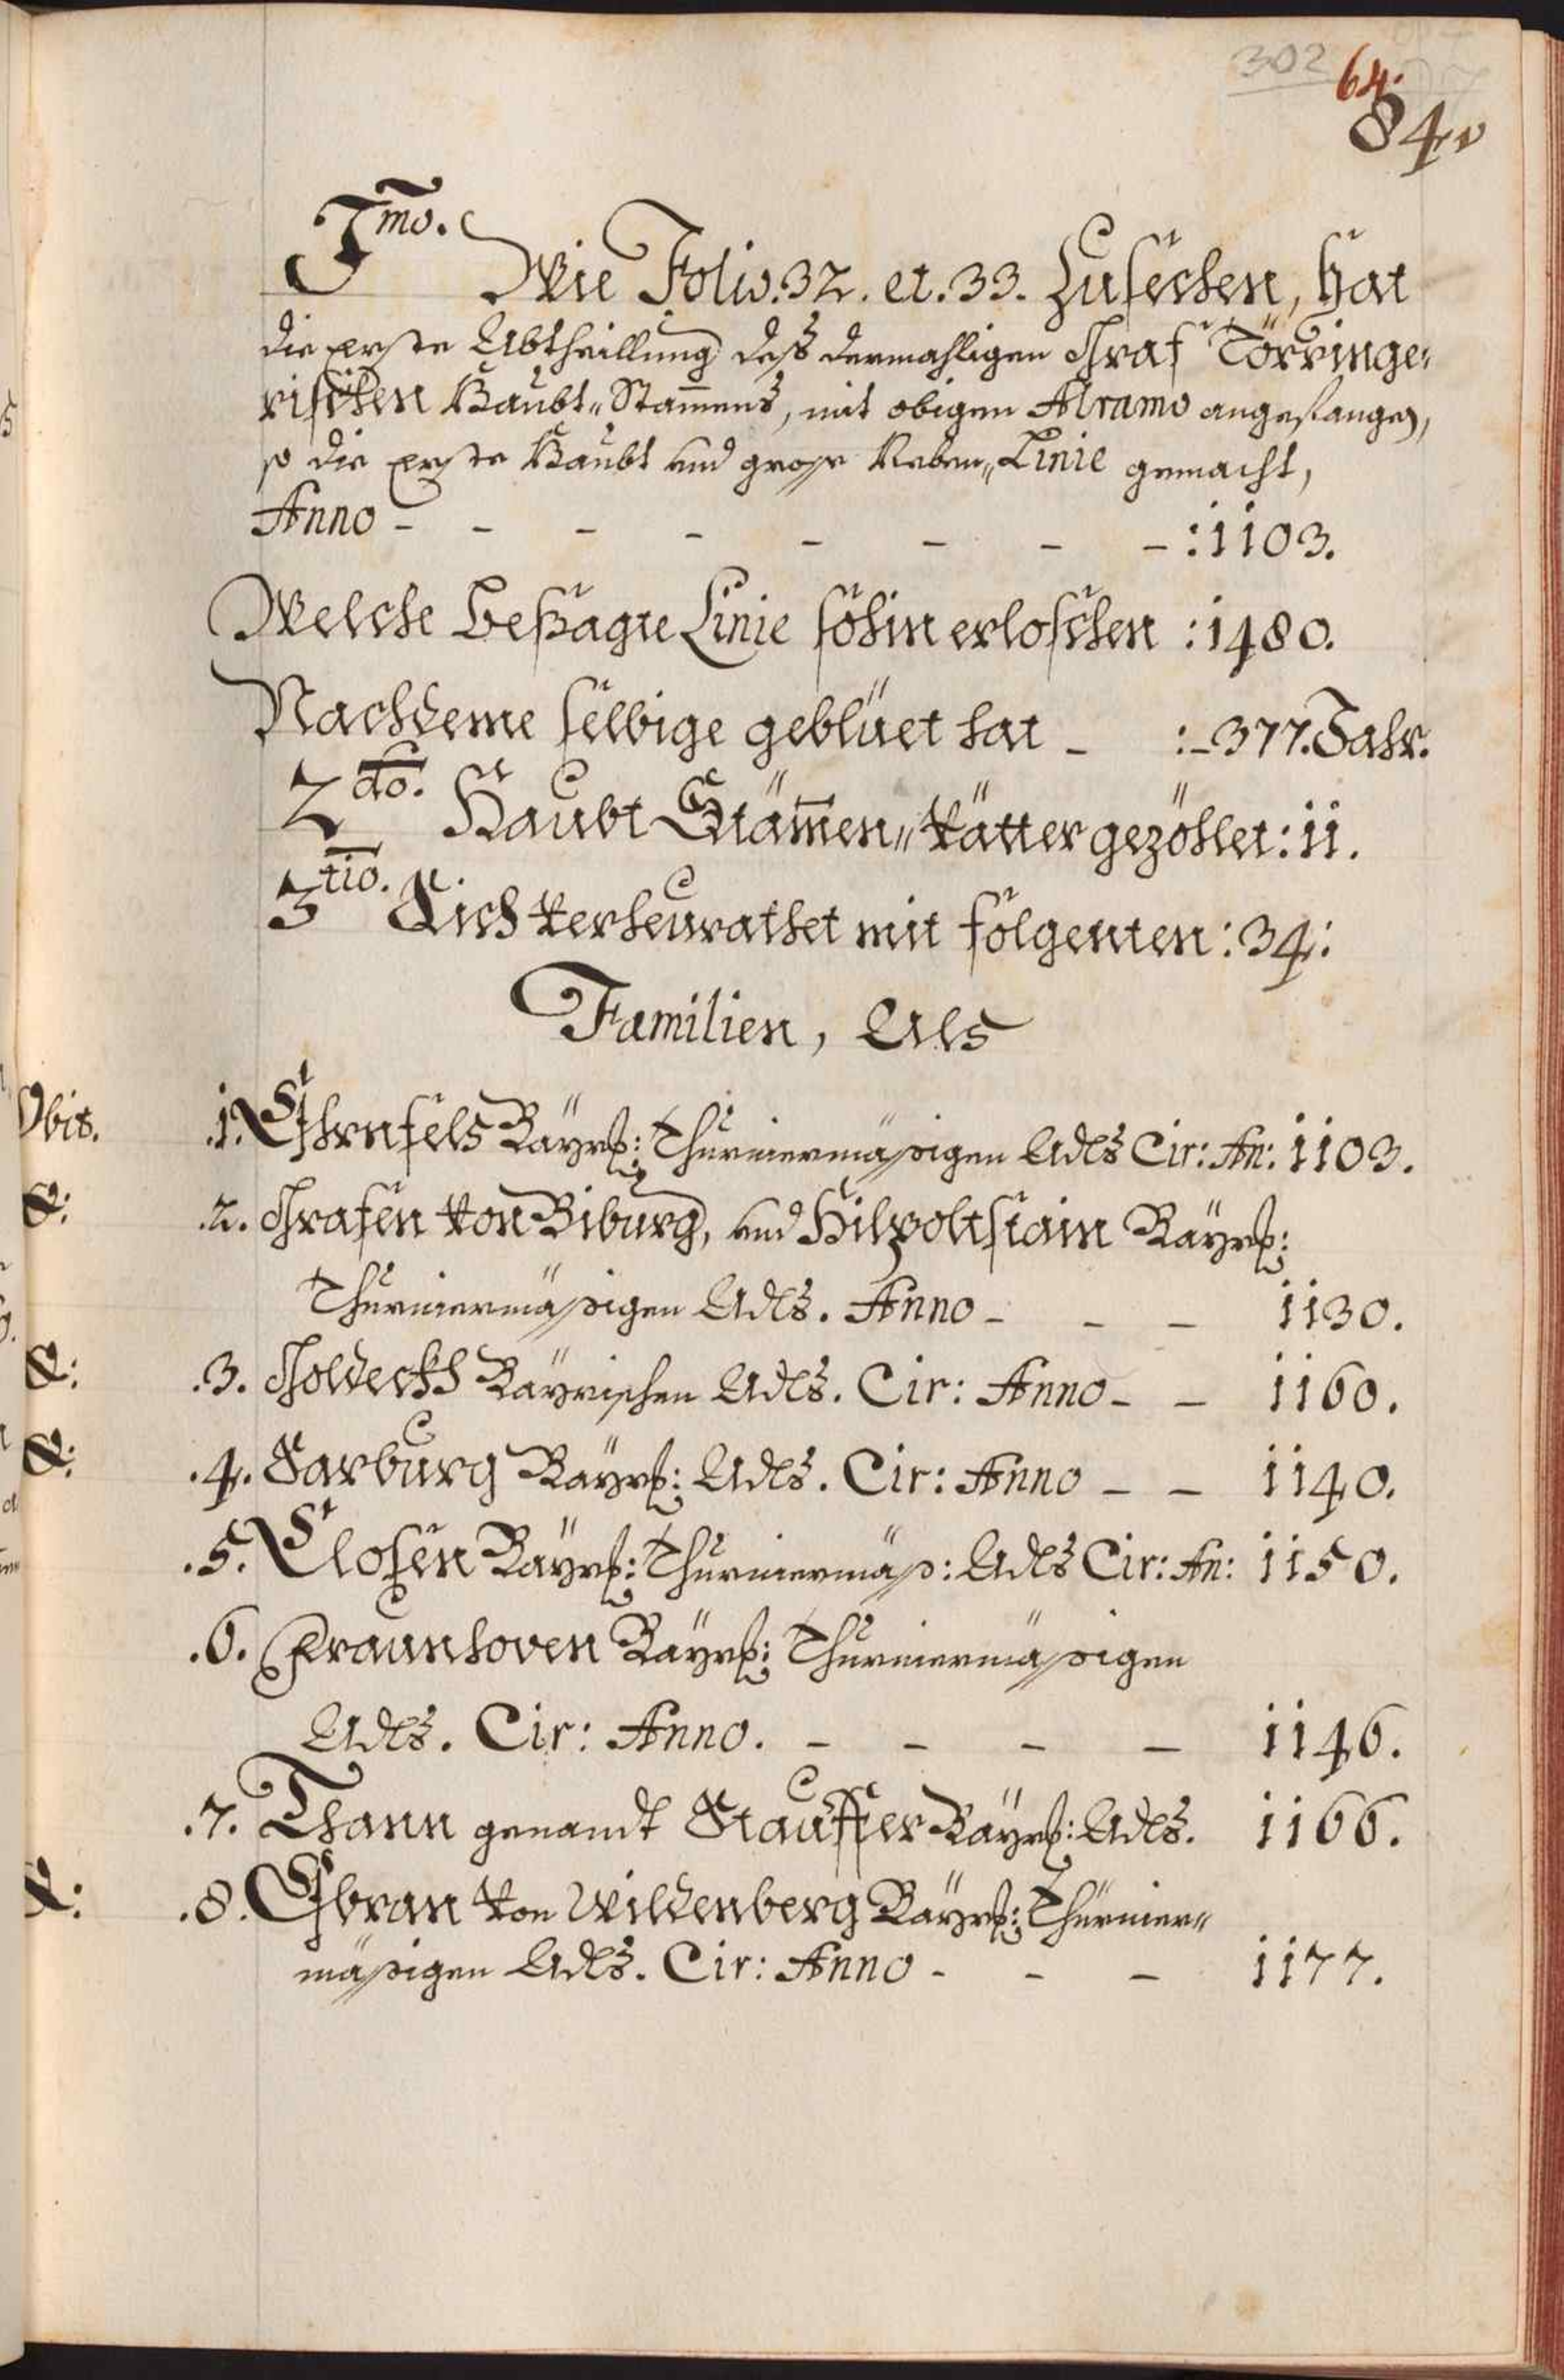 302 64.
84.
1mo.
Wie Folio. 32. et. 33. Zusechen, hat
die Erste Abtheillung dess dermahligen Graf Törringe:
rischen Haubt„Stam̄ens, mit obigen Alramo angefangen,
so die Erste Haubt und grosse Neben„Linie gemacht,
Anno - - - - - - - - :1103.
Welche besagte Linie sohin erloschen :1480.
Nachdeme selbige geblüet hat - :-377. Jahr.
2do. Haubt Stäm̄en„Vätter gezöhlet: 11.
3tio. Sich verheurathet mit folgenten: 34:
Familien, Als
Obit. .1. Ehrnfels Bayrs: Thurniermässigen Adls Cir: An: 1103.
&: .2. Grafen von Biburg, und Hilpoltstain Bayrs:
Thurniermässigen Adls. Anno - - - 1130.
&: .3. Goldeckh Bayrischen Adls. Cir: Anno - - 1160.
&: .4. Sarburg Bayrs: Adls. Cir: Anno - - 1140.
.5. Closen Bayrs: Thurniermäss: Adls Cir: An: 1150.
.6. Fraunhoven Bayrs: Thurniermässigen
Adls. Cir: Anno. - - - - 1146.
.7. Thann genandt Stauffer Bayrs: Adls. 1166.
&: .8. Ebran von Wildenberg Bayrs: Thurnier„
mässigen Adls. Cir: Anno - - - 1177.